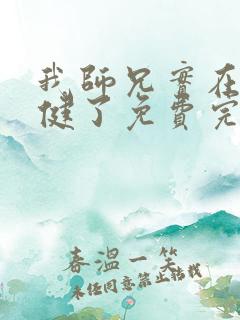 我師兄實在
健了免費完
春溫一笑
未經同意禁止轉載